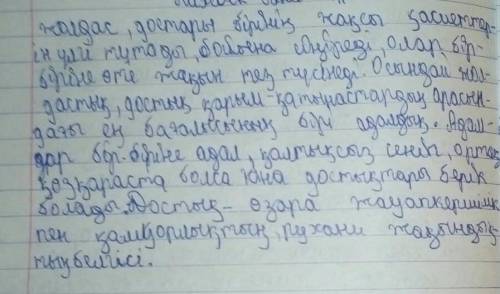 жолдас, достары бірінің жақсы қасиеттер-
ін үлгі тұтады, бойына сіңіреді, олар бір-
біріне өте жақын тез түсінеді. Осындай жол-
дастық, достық қарым-қатынастардың арасын-
дағы ең бағалысының бірі адалдық. Адам-
дар бір-біріне адал, қалтықсыз сеніп, ортақ
көзқараста болса ғана достықтары берік
болады. Достық - өзара жауапкершілік
пен қамқорлықтың, рухани жақындық-
тың белгісі.